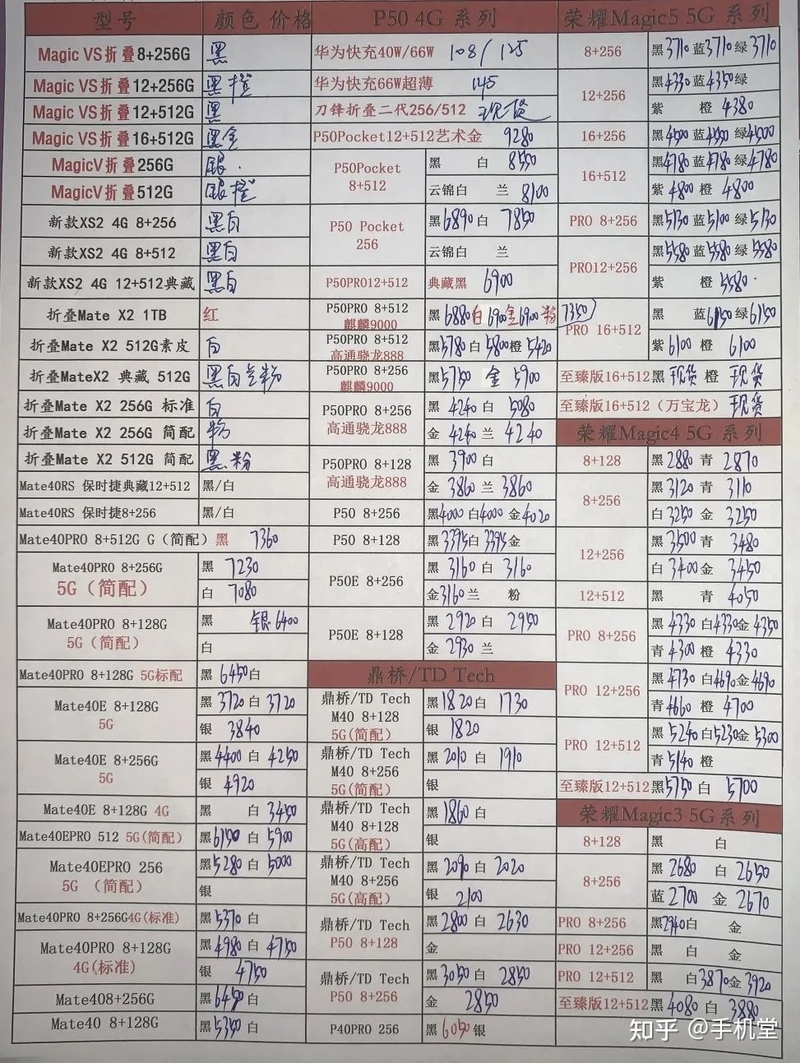 型号 颜色 价格
Magic VS折叠8+256G 黑
Magic VS折叠12+256G 黑橙
Magic VS折叠12+512G 黑
Magic VS折叠16+512G 黑金
MagicV折叠256G 银
MagicV折叠512G 银橙
新款XS2 4G 8+256 黑白
新款XS2 4G 8+512 黑白
新款XS2 4G 12+512典藏 黑白
折叠Mate X2 1TB 红
折叠Mate X2 512G素皮 白
折叠MateX2 典藏 512G 黑白兰粉
折叠Mate X2 256G 标准 白
折叠Mate X2 256G 简配 粉
折叠Mate X2 512G 简配 黑 粉
Mate40RS 保时捷典藏12+512 黑/白
Mate40RS 保时捷8+256 黑/白
Mate40PRO 8+512G G（简配） 黑 7360
Mate40PRO 8+256G 黑 7230
5G（简配） 白 7080
Mate40PRO 8+128G 黑 银6400
5G（简配） 白
Mate40PRO 8+128G 5G标配 黑6450白
Mate40E 8+128G 黑3720白3720
5G 银 3840
Mate40E 8+256G 黑4400白4250
5G 银 4920
Mate40E 8+128G 4G 黑 白3450
Mate40EPRO 512 5G(简配) 黑6150白5900
Mate40EPRO 256 黑5280白5000
5G （简配） 银
Mate40PRO 8+256G4G(标准) 黑5370白
Mate40PRO 8+128G 黑4980白4750
4G(标准) 银 4750
Mate408+256G 黑6450白
Mate40 8+128G 黑5350白
P50 4G 系列
华为快充40W/66W 108/125
华为快充66W超薄 145
刀锋折叠二代256/512 现货
P50Pocket12+512艺术金 9280
P50Pocket 黑 白 8550
8+512 云锦白 兰 8100
P50 Pocket 黑6890白 7850
256 云锦白 兰
P50PRO12+512 典藏黑 6900
P50PRO 8+512 黑6880白6900金6900粉7350
麒麟9000
P50PRO 8+512 黑5780白5800橙5420
高通骁龙888
P50PRO 8+256 黑5750 金 5900
麒麟9000
P50PRO 8+256 黑 4240白 5080
高通骁龙888 金 4240兰 4240
P50PRO 8+128 黑 3900白
高通骁龙888 金 3860兰 3860
P50 8+256 黑4000白4000金4020
P50 8+128 黑3395白3395金
P50E 8+256 黑3160白 3160
金3160兰 粉
P50E 8+128 黑 2920白 2950
金 2930兰
鼎桥/TD Tech
鼎桥/TD Tech 黑1820白 1730
M40 8+128
5G(简配) 银 1820
鼎桥/TD Tech 黑2010白 1910
M40 8+256
5G(简配) 银
鼎桥/TD Tech 黑1860白
M40 8+128
5G(高配) 银
鼎桥/TD Tech 黑2090白 2020
M40 8+256
5G(高配) 银 2100
鼎桥/TD Tech 黑2800白 2630
P50 8+128 金
鼎桥/TD Tech 黑3050白 2850
P50 8+256 金 2850
P40PRO 256 黑6050银
荣耀Magic5 5G 系列
8+256 黑3710蓝3710绿3710
12+256 黑4330蓝4350绿
紫 橙 4380
16+256 黑4500蓝4550绿4500
16+512 黑4780蓝4780绿4780
紫4800橙 4800
PRO 8+256 黑5130蓝5100绿5130
PRO12+256 黑5580蓝5580绿5580
紫 橙5580
PRO 16+512 黑 蓝6150绿6150
紫6100橙 6100
至臻版16+512 黑现货 橙 现货
至臻版16+512（万宝龙） 现货
荣耀Magic4 5G 系列
8+128 黑2880青 2870
8+256 黑3120青 3110
白3250金 3250
12+256 黑3500青 3480
白3400金 3450
12+512 黑 青 4050
PRO 8+256 黑4330白4330金4350
青4300橙 4330
PRO 12+256 黑4730白4690金4690
青4660橙 4700
PRO 12+512 黑5240白5230金5300
青5140橙
至臻版12+512 黑5750白 5700
荣耀Magic3 5G系列
8+128 黑 白
8+256 黑 2680白 2650
蓝 2700金 2670
PRO 8+256 黑2940白 金
PRO 12+256 黑 白 金
PRO 12+512 黑 白3870金3920
至臻版12+512 黑4080白 3880
知乎 @手机堂